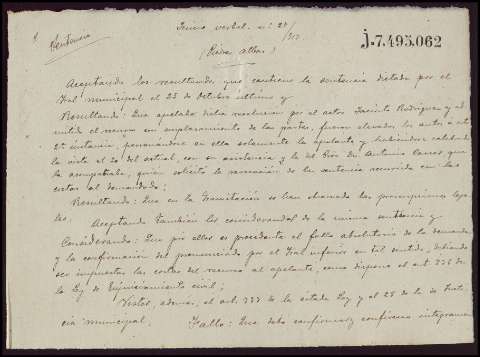 Sentencia
Juicio verbal n.º 27
j-7.495.062
Aceptando los resultandos que contiene la sentencia dictada por el
Tral municipal el 25 de Octubre último y
Resultando: Que apelada dicha resolución por el actor Jacinto Rodríguez y ad-
mitido el recurso con emplazamiento de las partes, fueron elevados los autos a esta
2ª instancia, personándose en ella solamente la apelante y habiéndose celebrado
la vista el 20 del actual, con su asistencia y la del Pror Dn Antonio que
la acompañaba, quien solicitó la revocación de la sentencia recurrida con las
costas al demandado;
Resultando: Que en la tramitación se han observado las prescripciones lega-
les,
Aceptando también los considerandos de la misma sentencia y
Considerando: Que por ellos es procedente el fallo absolutorio de la demanda
y la confirmación del pronunciado por el Tral inferior en tal sentido, debiendo
ser impuestas las costas del recurso al apelante, como dispone el art. 736 de
la Ley de Enjuiciamiento civil;
Vistos, además, el art. 737 de la citada Ley y el 28 de la de Justi-
cia municipal, Fallo: Que debo confirmar y confirmo íntegramen